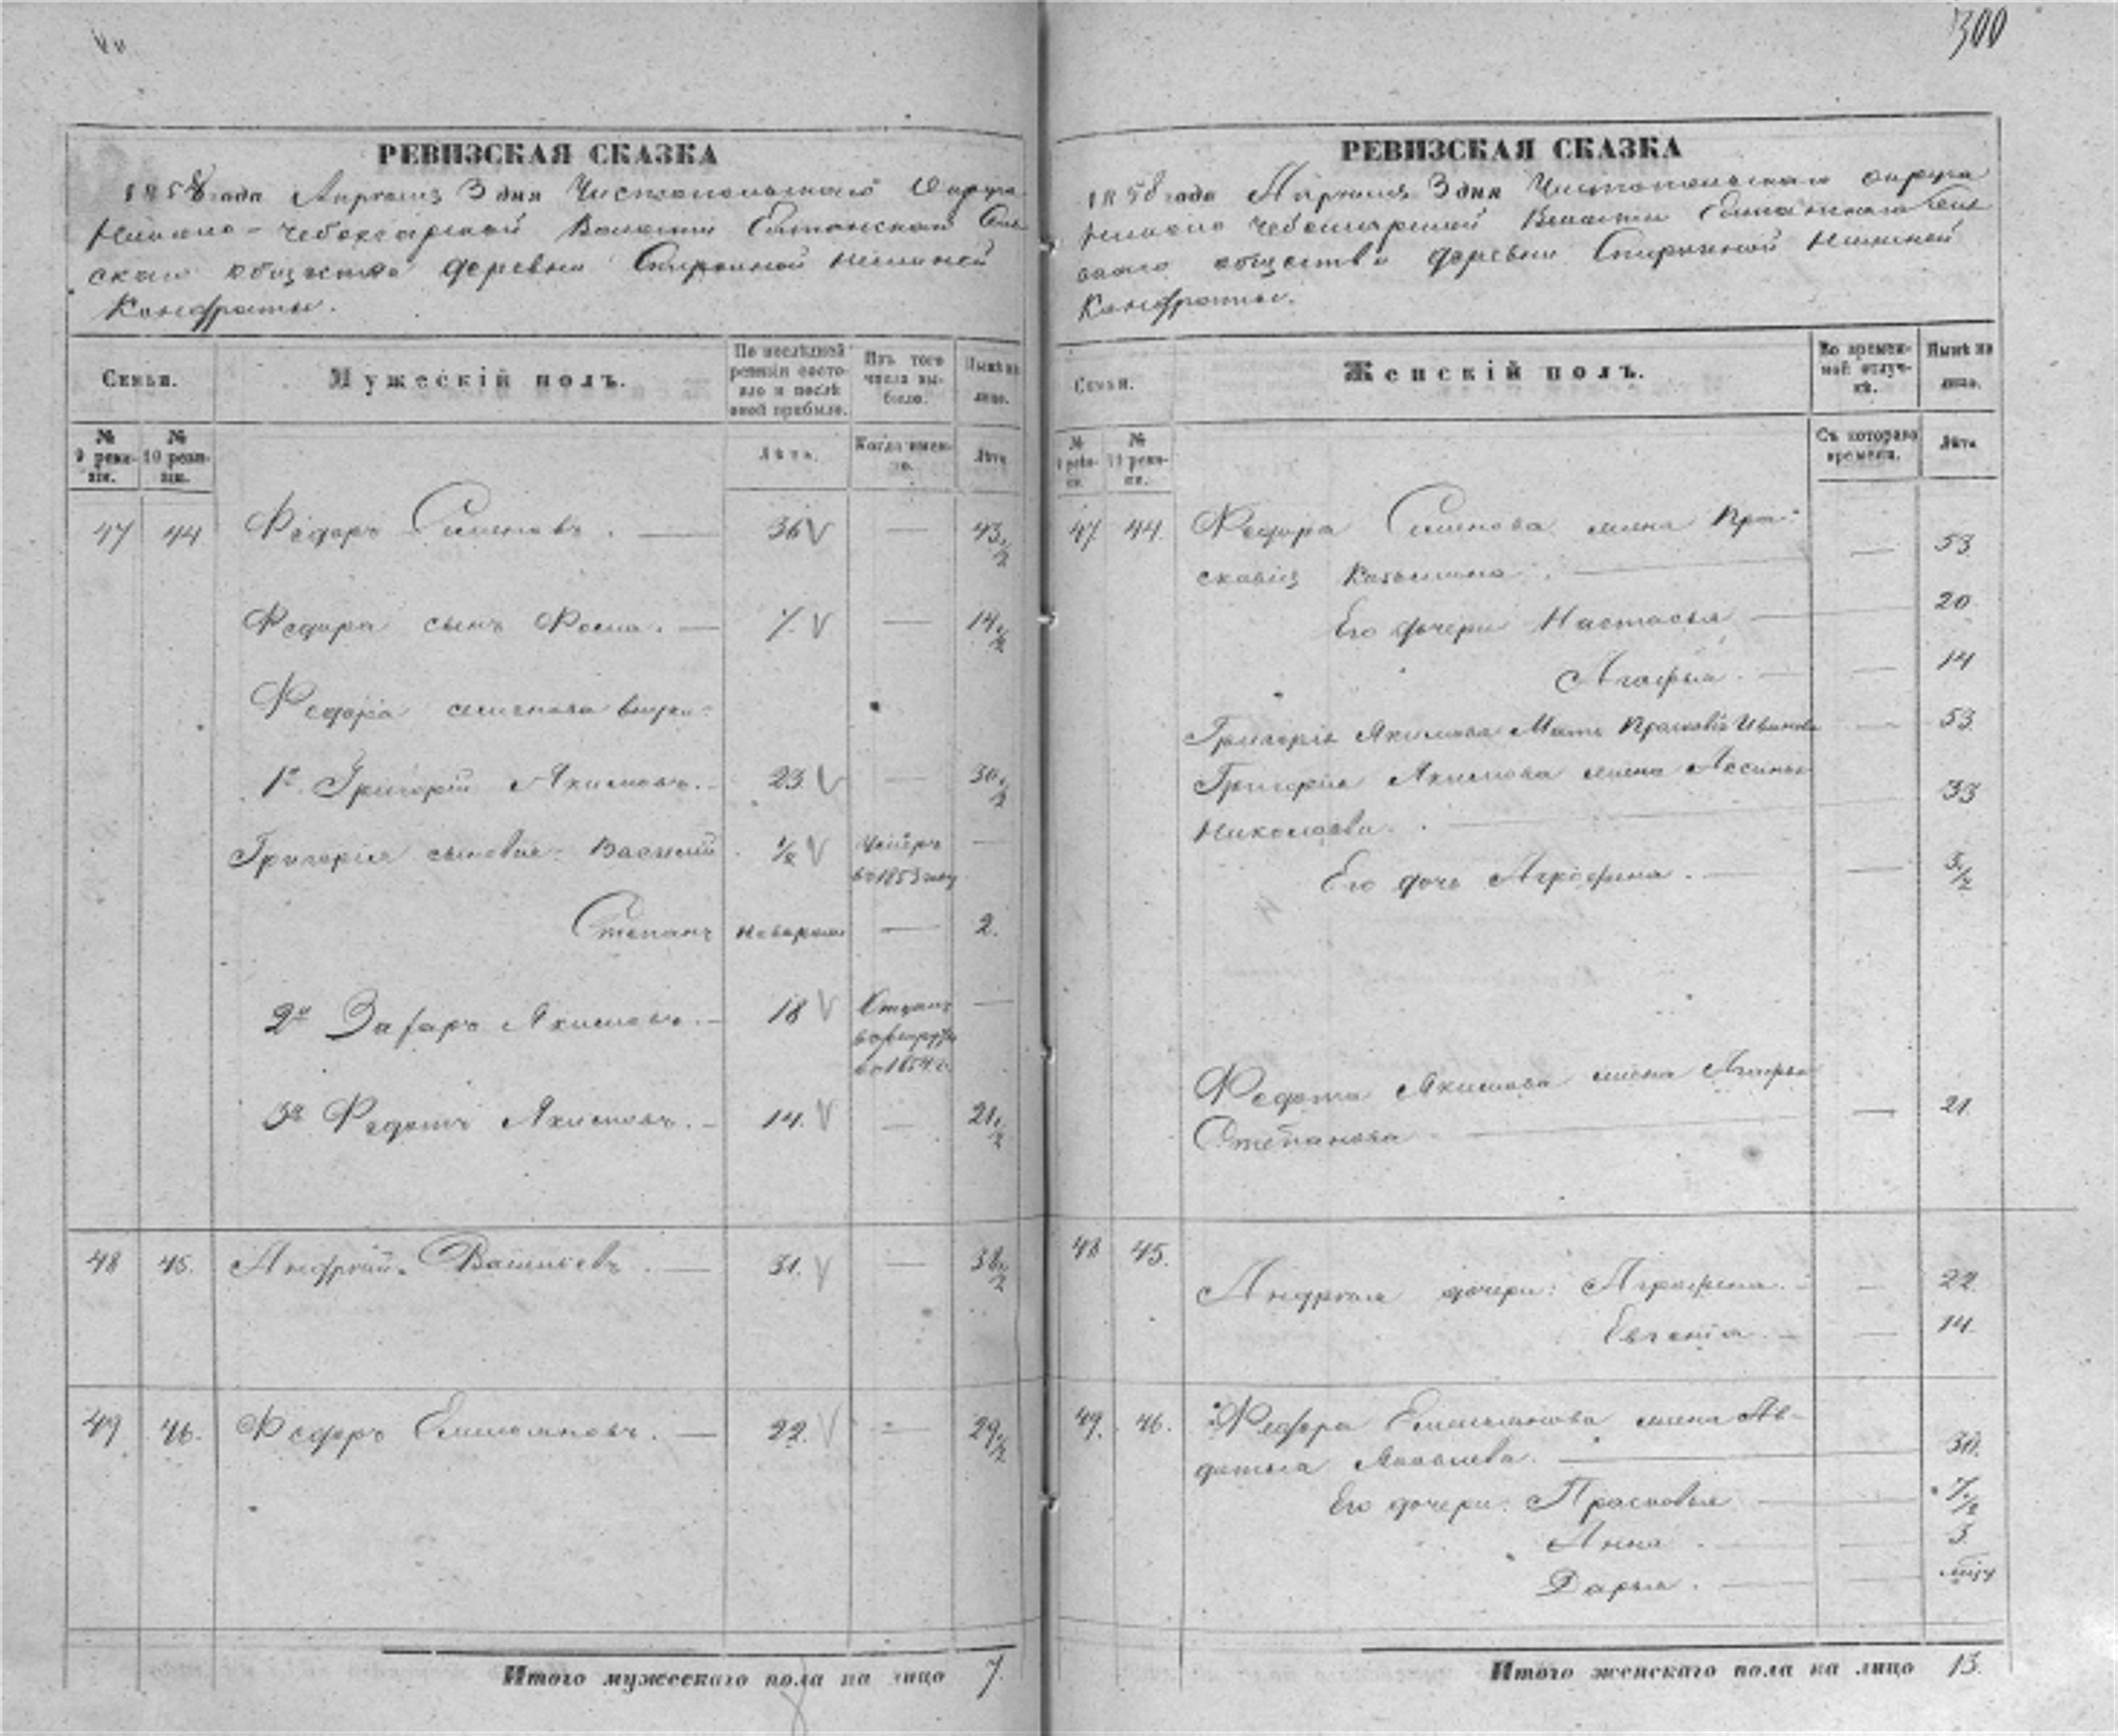 300
РЕВИЗСКАЯ СКАЗКА
1858 года Апреля 3 дня Чистопольскаго Округа
Чебоксарской Волости
скаго общества деревни
Кондраты.
Семьи.
Мужескій полъ.
По послѣдней ревизіи состояло и послѣ оной прибыло.
Изъ того числа выбыло.
Нынѣ на лицо.
№ 9 ревизіи.
№ 10 ревизіи.
Лѣта.
Когда именно.
Лѣта
47 44 Федоръ Семеновъ. — 36 — 43 1/2
Федора сынъ Фома. — 7. — 14 1/2
Федора Семенова
1й Григорій Якимовъ. — 23 — 30 1/2
Григорія сыновья: Василий 1/2 Умеръ —
в 1853 году
Степанъ — 2.
2й Захаръ Якимовъ. — 18 —
в 1854 г.
3й Федотъ Якимовъ. — 14. — 21 1/2
48 45. Андрей Васильевъ. — 31. — 38 1/2
49 46. Федоръ Емельяновъ. — 22. — 29 1/2
Итого мужескаго пола на лицо 7.
РЕВИЗСКАЯ СКАЗКА
1858 года Апреля 3 дня Чистопольскаго округа
Чебоксарской Волости
скаго общества деревни
Кондраты.
Семьи.
Женскій полъ.
Во временной отлучкѣ.
Нынѣ на лицо.
№ 9 ревизіи.
№ 10 ревизіи.
Съ котораго времени.
Лѣта
47 44. Федора Семенова жена Пра-
сковія — — 53
Его дочери Настасья — 20.
Агафья. — — 14
Григорія Якимова Мать Прасковія Иванова — 53
Григорія Якимова жена Аксинья
Николаева. — 33
Его дочь Аграфена. — — 5 1/2
Федота Якимова жена Агафья
Степанова — — 21.
48 45.
Андрея дочери: Аграфена. — — 22.
Евгенія — — 14.
49. 46. Федора Емельянова жена Ав-
дотья Яковлева. — 30.
Его дочери: Прасковья — 7 1/2
Анна. — 3.
Дарья. —
Итого женскаго пола на лицо 13.